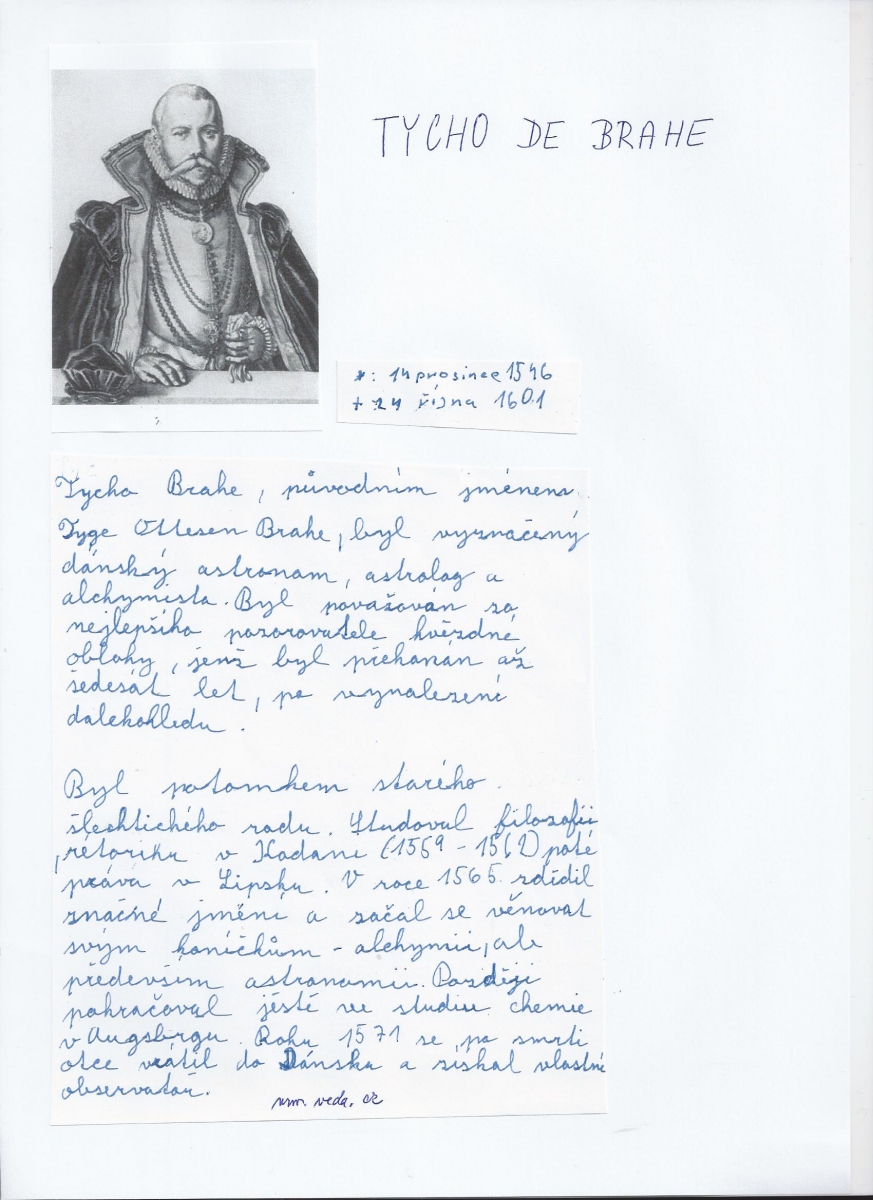 TYCHO DE BRAHE
*: 14 prosince 1546
+ 24 října 1601
Tycho Brahe, původním jménem
Tyge Ottesen Brahe, byl vyznačený
dánský astronom, astrolog a
alchymista. Byl považován za
nejlepšího pozorovatele hvězdné
oblohy, jenž byl překonán až
šedesát let, po vynalezení
dalekohledu.
Byl potomkem starého
šlechtického rodu. Studoval filozofii
, rétoriku v Kodani (1559 - 1562) poté
práva v Lipsku. V roce 1565 zdědil
značné jmění a začal se věnovat
svým koníčkům - alchymii, ale
především astronomii. Později
pokračoval jěště ve studiu chemie
v Augsbrgu. Roku 1571 se po smrti
otce vrátil do Dánska a získal vlastní
observatoř.
www. veda. cz